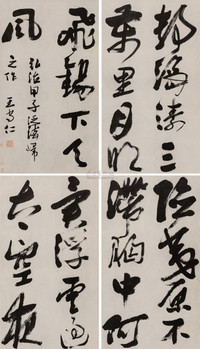 險夷原不
滯胸中何
異浮雲過
太空夜
靜海濤三
萬里月明
飛錫下天
風
弘治甲子泛海歸
之作 王守仁